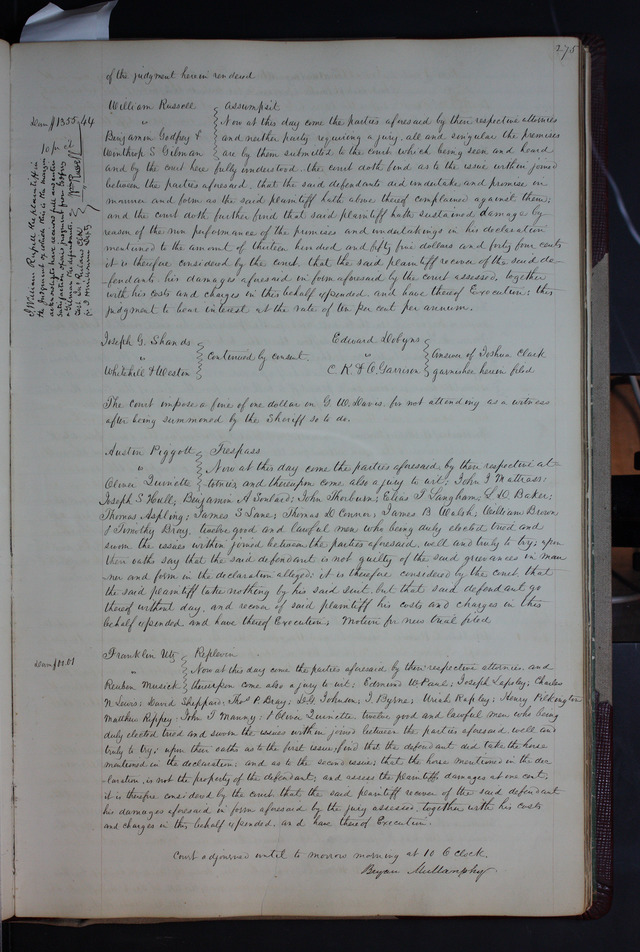 275
of the judgment herein rendered
William Russell } assumpsit
" } Now at this day come the parties aforesaid by their respective attornies
Benjamin Godfrey & } and neither party requiring a jury, all and singular the premises
Winthrop S Gilman } are by them submitted to the court which being seen and heard
and by the court here fully understood. the court doth find as to the issue within joined
between the parties aforesaid, that the said defendants did undertake and promise in
manner and form as the said plaintiff hath above thereof complained against them;
and the court doth further find that said plaintiff hath sustained damages by
reason of the non performance of the promises and undertakings in his declaration
mentioned to the amount of thirteen hundred and fifty five dollars and forty four cents
it is therefore considered by the court, that the said plaintiff recover of the said de-
fendants his damages aforesaid in form aforesaid by the court assessed, together
with his costs and charges in this behalf expended, and have thereof Execution; this
judgment to bear interest at the rate of ten per cent per annum.
Dam $1355.44
10 pr ct
I William Russell the plaintiff in
the judgment opposite this in the margin
acknowledge to have received full and entire
satisfaction of said judgment from Godfrey
& Gilman the defendants
Wm Russell
Joseph G. Shands }
" } Continued by consent
Whitehill & Weston }
Edward Dobyns }
" } Answer of Joshua Clark
C. K. & O. Garrison } garnishee herein filed
The Court impose a fine of one dollar on G. W. Davis. for not attending as a witness
after being summoned by the Sheriff so to do.
Austin Piggott } Trespass
" } Now at this day come the parties aforesaid by their respective at-
Oliver Quinette } tornies and thereupon come also a jury to wit; John J Mattrass;
Joseph S Hull; Benjamin A Soulard; John Thorburn; Elias T Langham; L D Baker;
Thomas Aspling; James S Lane; Thomas O Connor; James B Walsh; William Brown
& Timothy Bray, twelve good and lawful men who being duly elected tried and
sworn the issues within joined between the parties aforesaid, well and truly to try; upon
their oaths say that the said defendant is not guilty of the said grievances in man
ner and form in the declaration alleged; it is therefore considered by the court, that
the said plaintiff take nothing by his said suit, but that said defendant go
thereof without day, and recover of said plaintiff his costs and charges in this
behalf expended and have thereof Execution; Motion for new trial filed
Dam $0.01
Franklin Utz } Replevin
" } Now at this day come the parties aforesaid by their respective attornies, and
Reuben Musick } thereupon come also a jury to wit; Edmond W Paul; Joseph Lapsley; Charles
N Lewis; David Sheppard; Thos P. Bray; D.G Johnson; J. Byrne; Uriah Rapley; Henry Pilkington
Matthew Rippey; John T Manny; & Oliver Quinette twelve good and lawful men who being
duly elected, tried and sworn the issues within joined between the parties aforesaid well and
truly to try; upon their oaths as to the first issue, find that the defendant did take the horse
mentioned in the declaration; and as to the second issue; that the horse mentioned in the dec-
laration, is not the property of the defendant; and assess the plaintiffs damages at one cent;
it is therefore considered by the court that the said plaintiff recover of the said defendant
his damages aforesaid in form aforesaid by the jury assessed, together with his costs
and charges in this behalf expended, and have thereof Execution.
Court adjourned until to morrow morning at 10 O clock.
Bryan Mullanphy